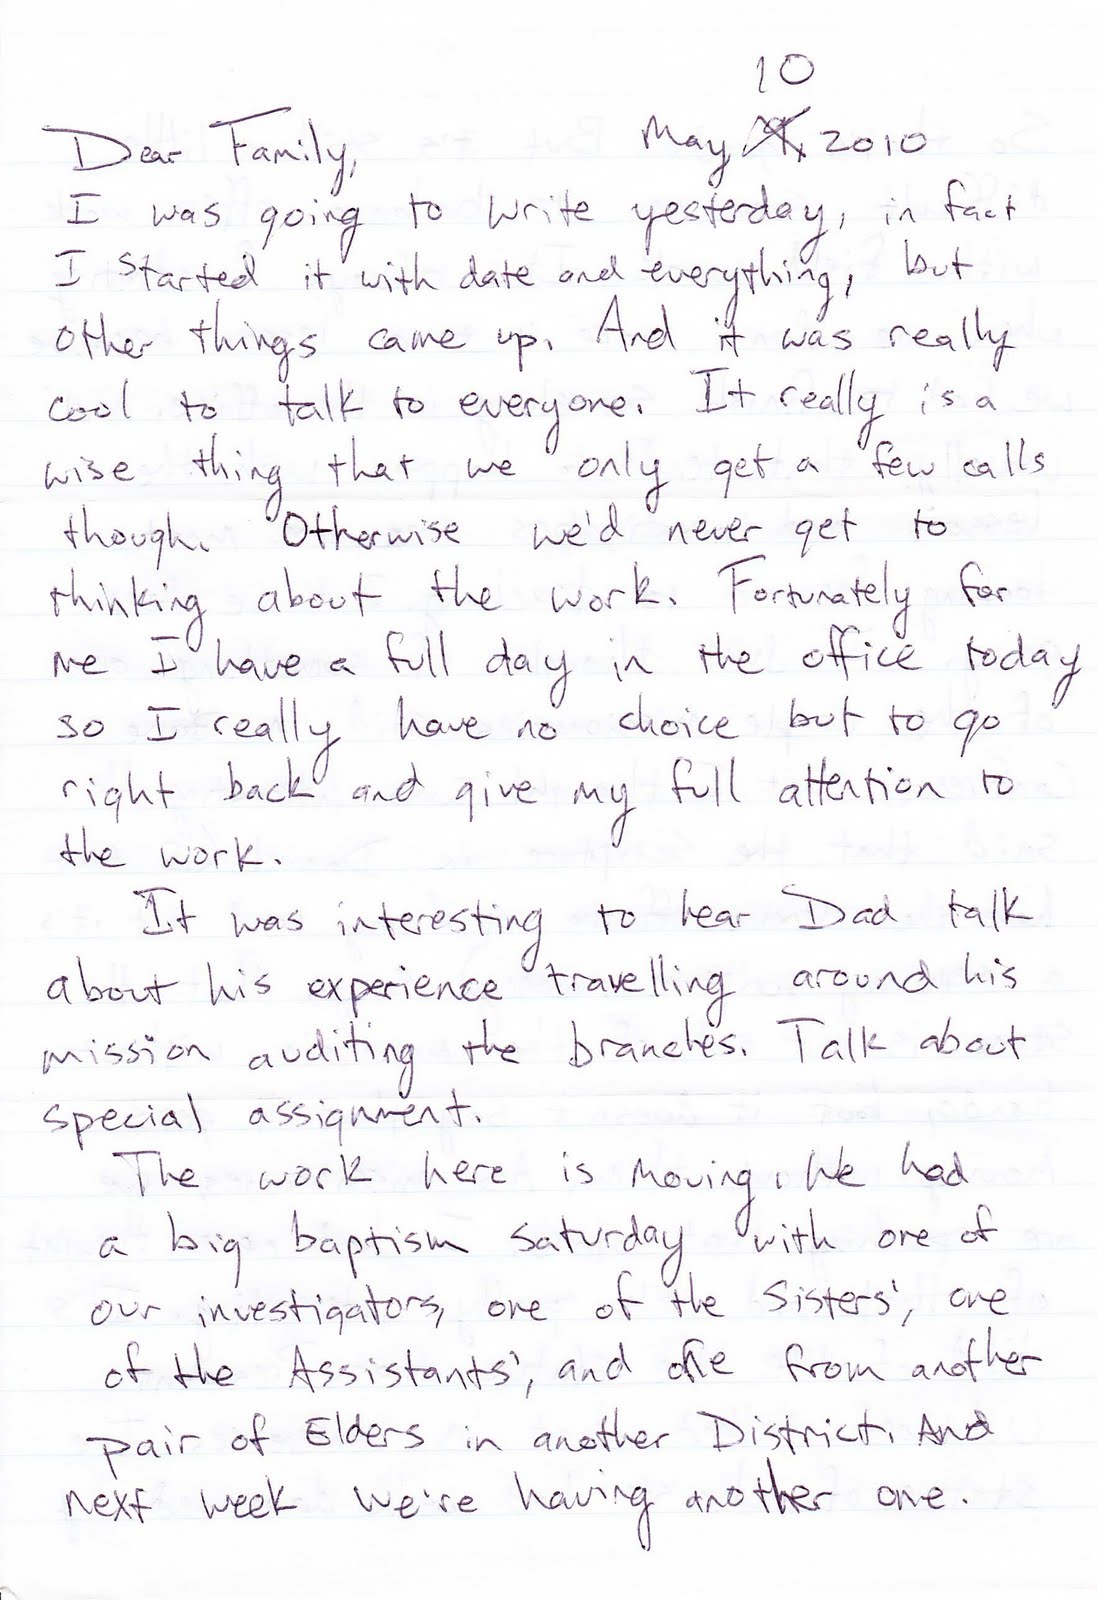 10
Dear Family, May 9, 2010
I was going to write yesterday, in fact
I started it with date and everything, but
other things came up. And it was really
cool to talk to everyone. It really is a
wise thing that we only get a few calls
though. Otherwise we'd never get to
thinking about the work. Fortunately for
me I have a full day in the office today
so I really have no choice but to go
right back and give my full attention to
the work.
It was interesting to hear Dad talk
about his experience travelling around his
mission auditing the branches. Talk about
special assignment.
The work here is moving. We had
a big baptism Saturday with one of
our investigators, one of the Sisters', one
of the Assistants', and one from another
pair of Elders in another District. And
next week we're having another one.